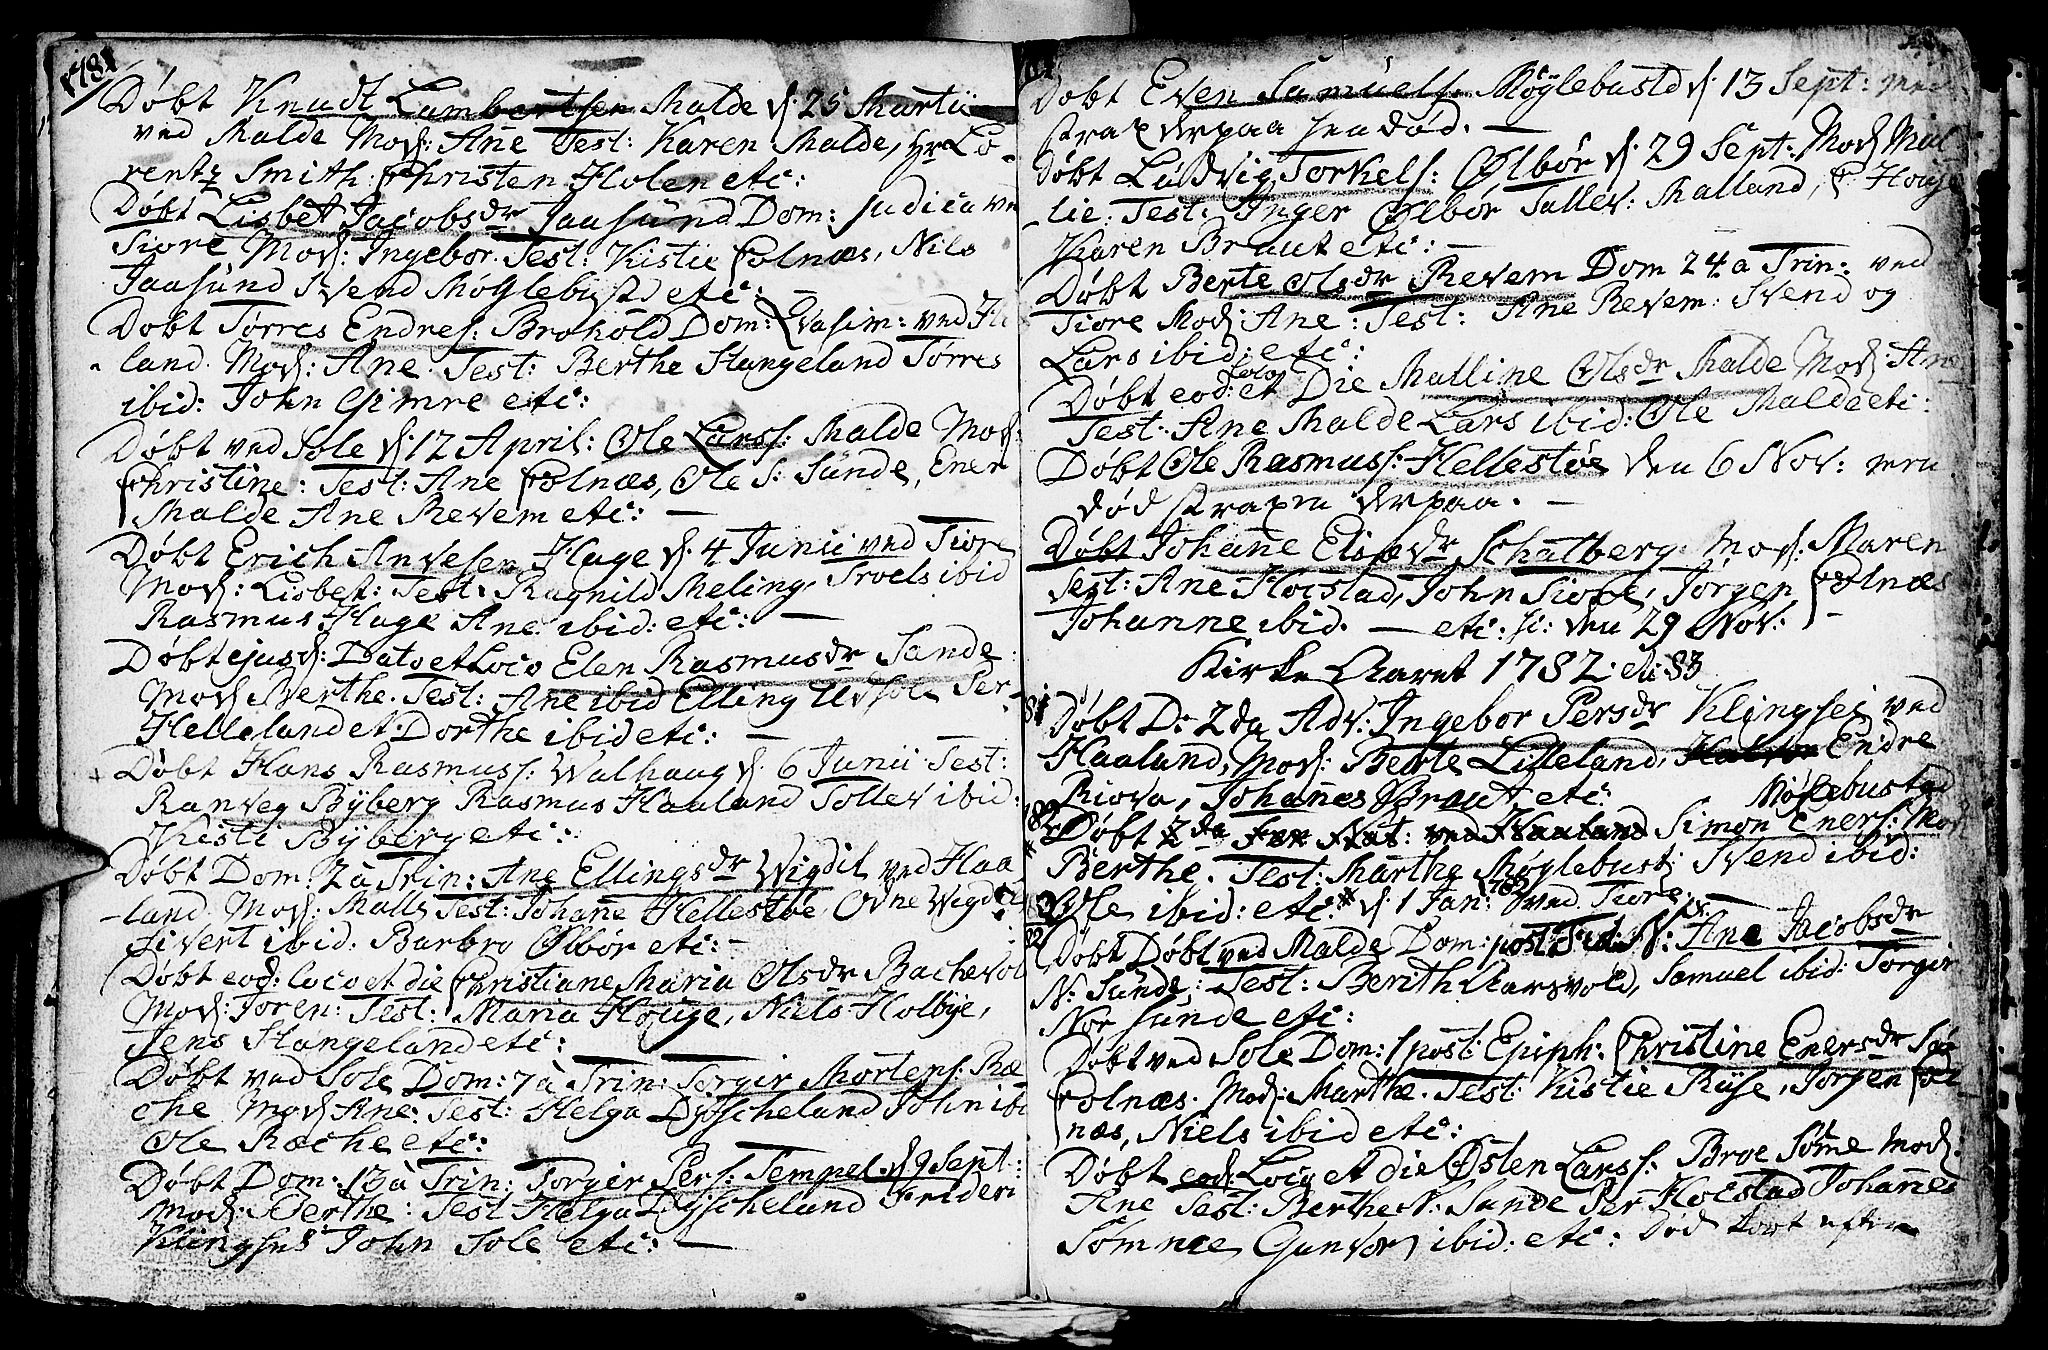 1781
Døbt Knudt Lambertsen Malde d: 25 Martii
ved Malde Mod: Ane Test: Karen Malde, Hr Lo-
rentz Smith: Christen Holen etc:
Døbt Lisbet Jacobsdr Jaasund Dom: Judica ved
Tiore Mod: Ingebor. Test: Kistie Folnæs, Nils
Jaasund Svend Møglebust etc: —
Døbt Tørres Endres: Brokold Dom: Qvasim: ved Ha
land. Mod: Ane. Test: Berthe Stangeland Tørres
ibid: John Gimre etc:
Døbt ved Sole d: 12 April: Ole Larss: Malde Mod:
Christine: Test: Ane Folnæs, Ole S: Sunde, Ener
Malde Ane Revem etc: —
Døbt Erich Anvesen Hage d: 4 Junii ved Tiore
Mod: Lisbet: Test: Ragnild Meling, Troels ibid
Rasmus Hage Ane ibid: etc: —
Døbt ejusd: Dato et Loco Elen Rasmusdr Sande:
Mod Berthe. Test: Ane ibid Elling Udsole Per
Helleland et: Dorthe ibid etc: —
Døbt Hans Rasmuss: Walhaug d. 6 Junii Test:
Ranveg Bÿberg Rasmus Haaland Tollev ibid:
Kisti Bÿberg etc:
Døbt Dom: 2 à Trin: Ane Ellingsdr Wigdil ved Haa
land. Mod: Malli Test: Johane Hellestøe, Odne Wigdel
Sivert ibid: Barbro Ølbør etc: —
Døbt eod: loco et die Christiane Maria Olsdr Bachevol
Mod: Joren: Test: Maria Houge, Niels Holbÿe,
Jens Stangeland etc:
Døbt ved Sole Dom: 7 à Trin: Torgir Mortens: Ræ
che Mod Ane: Test: Helga Dÿscheland John ibi
Ole Ræche etc:
Døbt Dom: 13 à Trin: Torgier Pers: Tempel d 9 Sept:
Mod: Berthe: Test Helga Dÿscheland Frideri
Klingsns John Sole etc: —
Døbt Even Samuels: Møglebust d: 13 Sept:
strax derpaa hendød. —
Døbt Ludvig Torkels: Ølbør d: 29 Sept: Mod Mal
lie: Test: Inger Ølbør Tallev: Malland, Houge
Karen Braut etc: —
Døbt Berte Olsdr Revem Dom 24 a Trin: ved
Tiore Mod: Ane: Test: Ane Revem: Svend og
Lars ibid: etc:
Døbt eod: loco et Die Malline Olsdr Malde Mod: Ane
Test: Ane Malde Lars ibid: Ole Malde etc:
Døbt Ole Rasmuss: Hellestøe den 6 Nov: men
død straxen derpaa. —
Døbt Johane Eliædr Schatberg Mod: Maren
Test: Ane Hocstad, John Tiore, Jørgen Folnæs
Johanne ibid. — etc: den 29 Nov: —
Kirke Aaret 1782 et 83
81 Døbt D: 2da Adv: Ingebor Persdr Klingsei ved
Haaland, Mod: Berte Lilleland, Endre
Riova, Johanes Braut etc:
Møglebustad
1782 Døbt 2da Nat: ved Haaland Simon Eners: Mod
Berthe. Test: Marthe Møglebust: Svend ibid:
Ole ibid: etc: * d: 1 Jan: 1782 ved Tiore —
Døbt Døbt ved Malde Dom: post N: Ane Jacobsdr
N: Sunde: Test: Berith Aarsvold, Samuel ibid: Torgir
Nor Sunde etc:
Døbt ved Sole Dom: 1 post: Epiph: Christine Enersdr
Folnæs. Mod: Marthe. Test: Kistie Rÿse, Jorgen Fol
næs, Niels ibid etc:
Døbt eod: Loco et die Østen Larss: Broe Sømme Mod:
Ane Test: Berthe N: Sunde Per Hocstad Johannes
Sømne, Gunvor ibid: etc: død kort efter